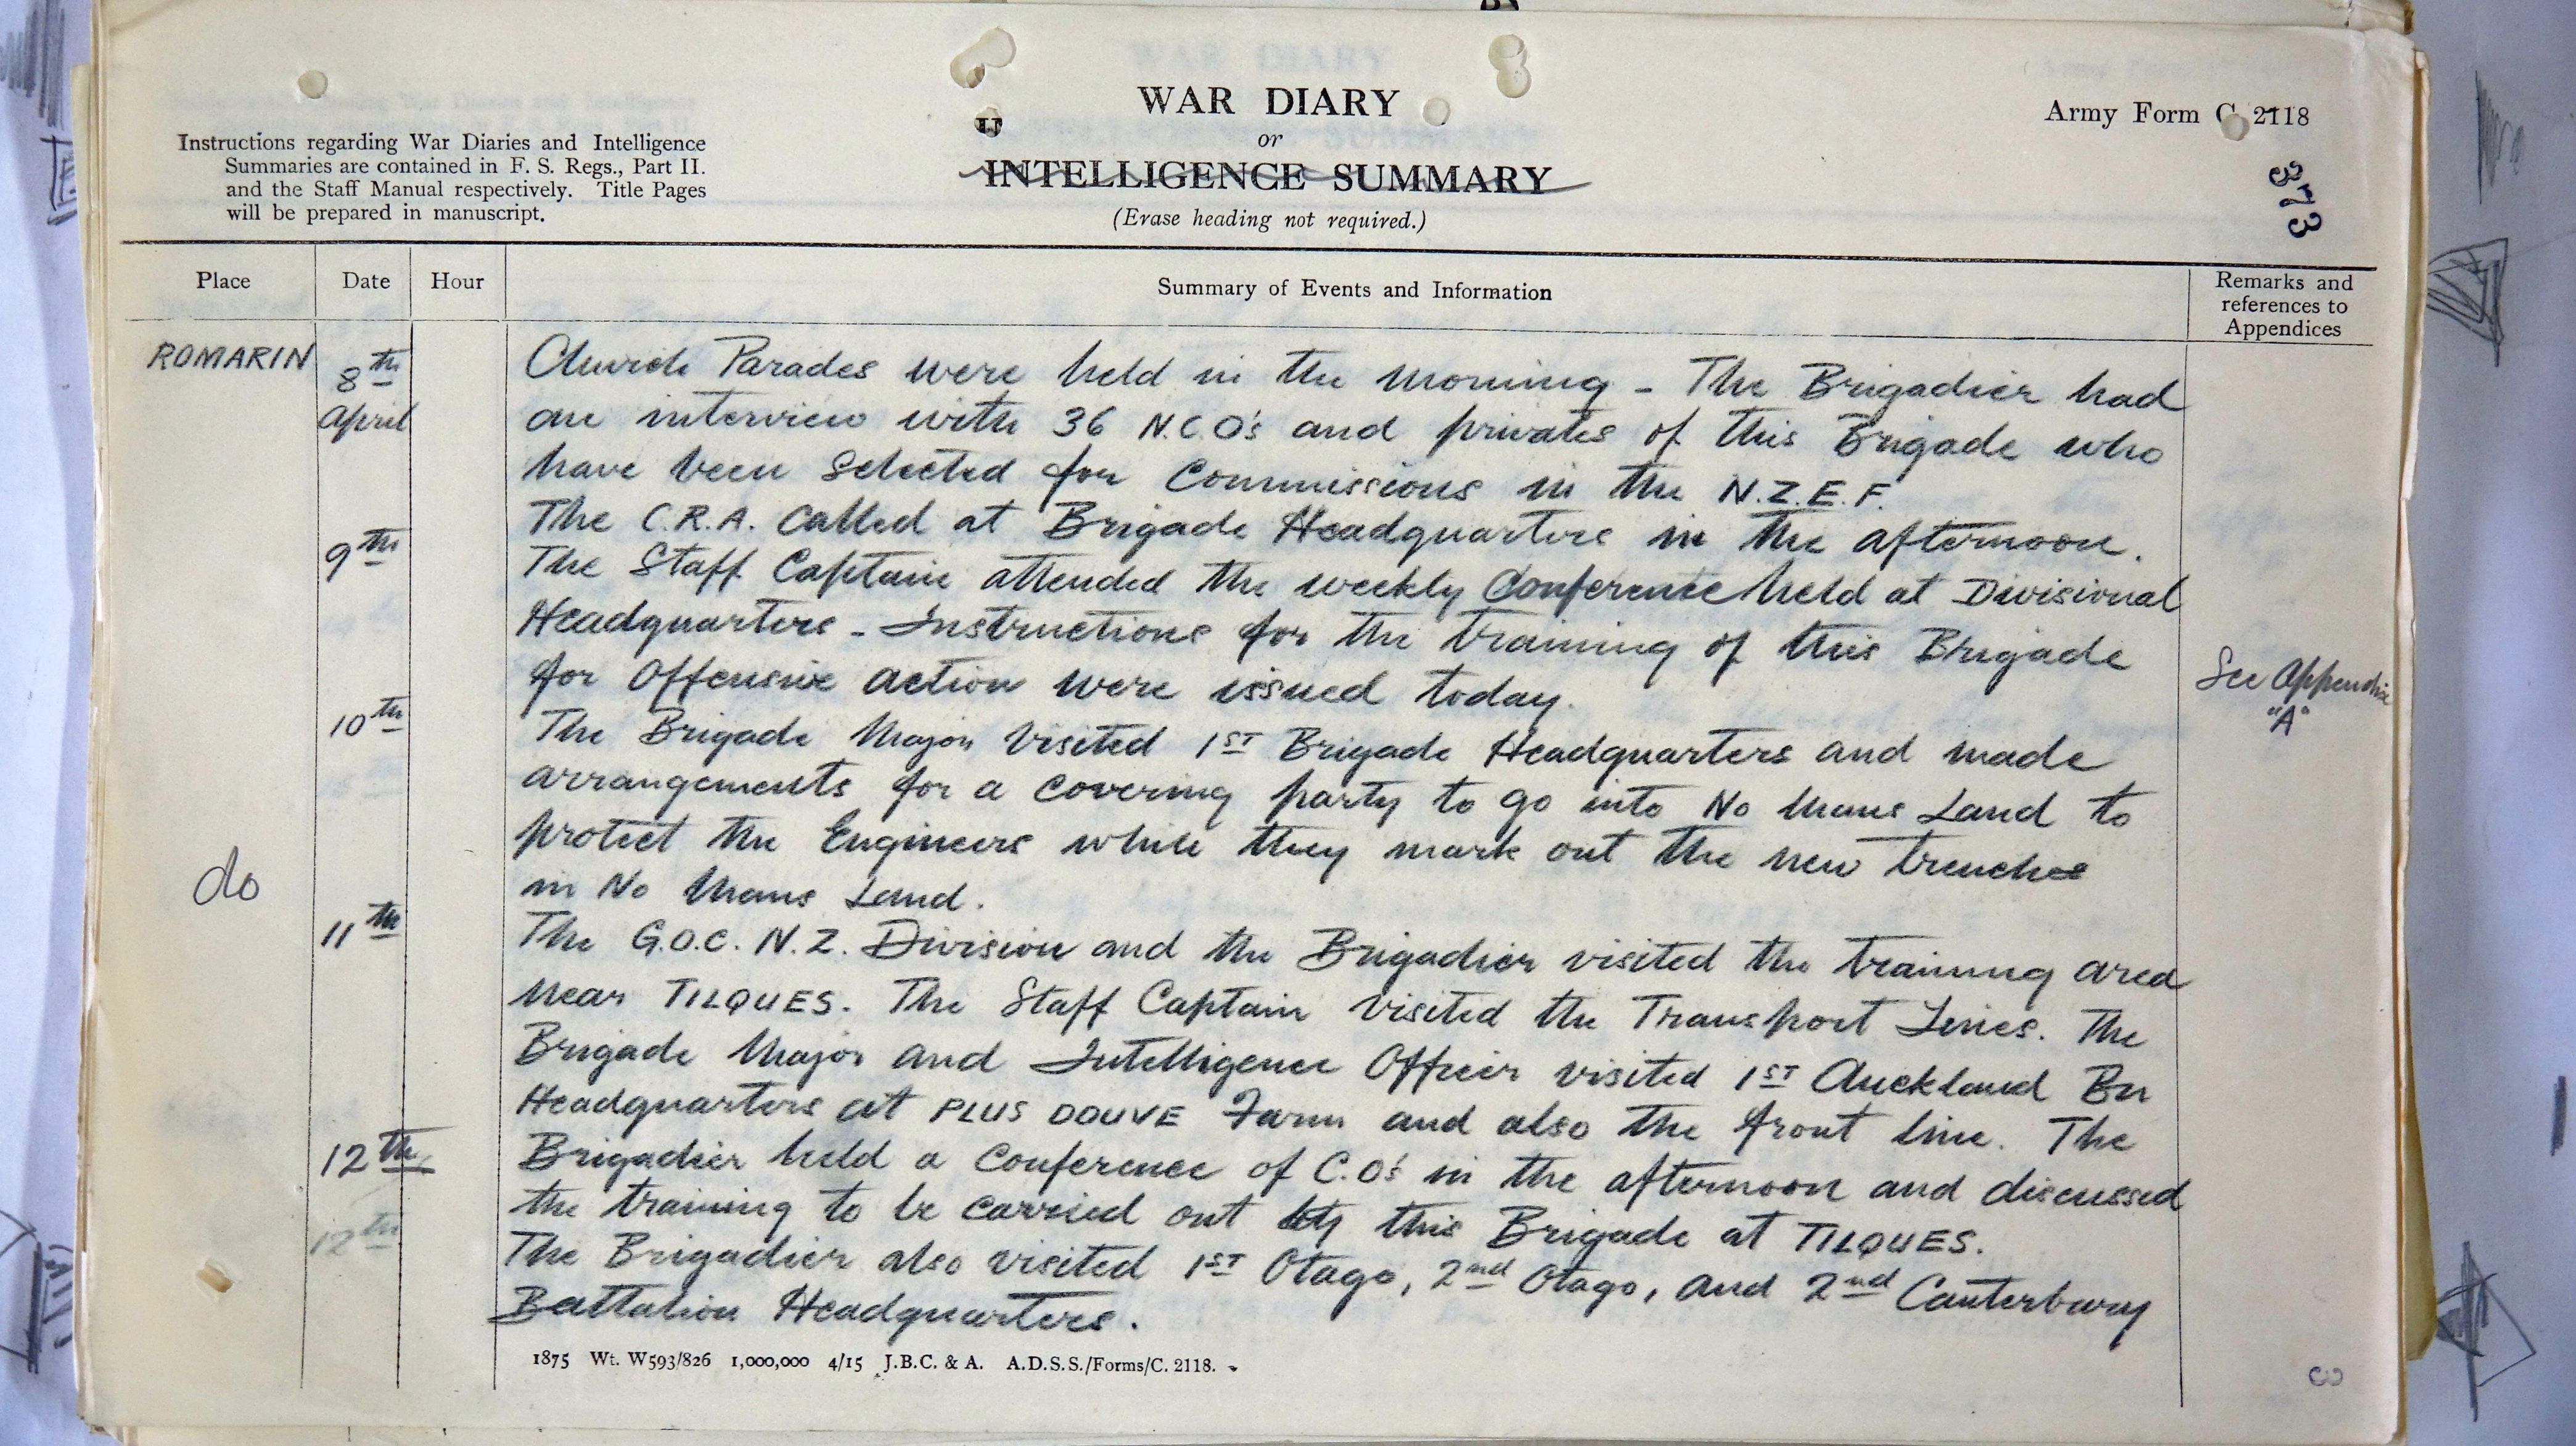 WAR DIARY
or
INTELLIGENCE SUMMARY
(Erase heading not required.)
Army Form C. 2118
373
Instructions regarding War Diaries and Intelligence
Summaries are contained in F. S. Regs., Part II.
and the Staff Manual respectively. Title Pages
will be prepared in manuscript.
Place
Date
Hour
Summary of Events and Information
Remarks and
references to
Appendices
ROMARIN
8th
April
Church Parades were held in the morning - The Brigadier had
an interview with 36 N.C.O's and privates of this Brigade who
have been selected for Commissions in the N.Z.E.F.
The C.R.A. called at Brigade Headquarters in the afternoon.
9th
The Staff Captain attended the weekly Conference held at Divisional
Headquarters - Instructions for the training of this Brigade
for Offensive action were issued today.
See Appendix
"A"
10th
The Brigade Major visited 1ST Brigade Headquarters and made
arrangements for a covering party to go into No Mans Land to
protect the Engineers while they mark out the new trenches
in No Mans Land.
do
11th
The G.O.C. N.Z. Division and the Brigadier visited the training area
near TILQUES. The Staff Captain visited the Transport Lines. The
Brigade Major and Intelligence Officer visited 1ST Auckland Bn
Headquarters at PLUS DOUVE Farm and also the front line. The
12th
Brigadier held a Conference of C.O's in the afternoon and discussed
the training to be carried out by this Brigade at TILQUES.
12th
The Brigadier also visited 1ST Otago, 2nd Otago, and 2nd Canterbury
Battalion Headquarters.
1875 Wt. W593/826 1,000,000 4/15 J.B.C. & A. A.D.S.S./Forms/C. 2118.
3